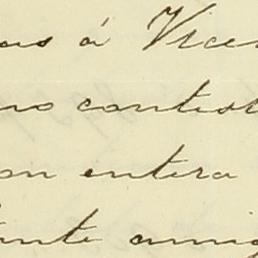 as á Vice
no contest
on entera
ante amig